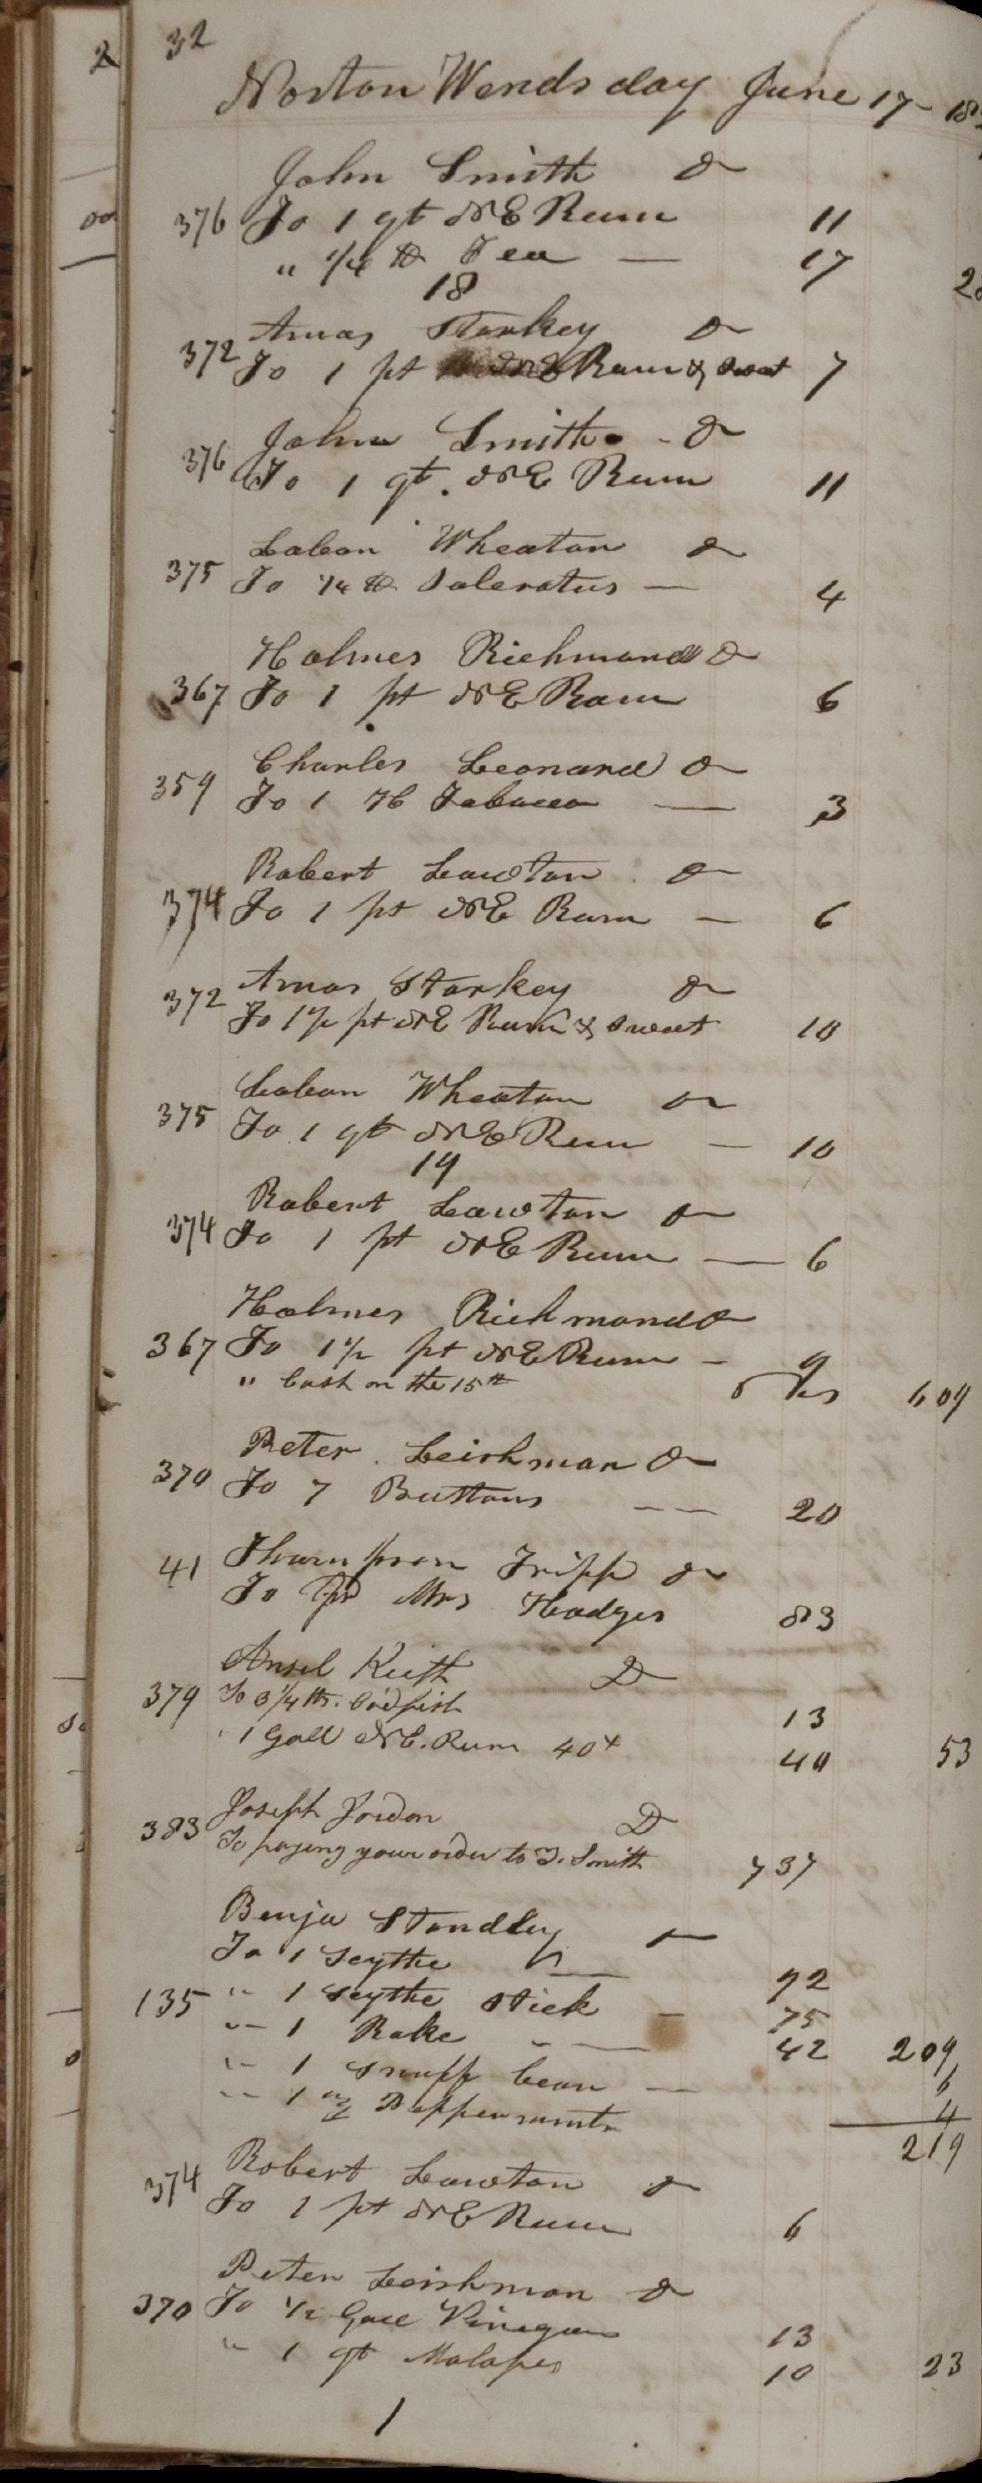 2
32
Norton Wendsday June 17 - 18
John Smith Dr
376 To 1 qt NE Rum 11
" 1/4 lb Tea — 17 28
18
Amos Starkey Dr
372 To 1 pt NE Rum & Sweet 7
John Smith - Dr
376 To 1 qt. NE Rum 11
Laban Wheaton Dr
375 To 1/4 lb Saleratus — 4
Holmes Richmond Dr
367 To 1 pt NE Rum 6
Charles Leonard Dr
359 To 1 Hd Tobacco — 3
Robert Lawton Dr
374 To 1 pt NE Rum — 6
Amos Starkey Dr
372 To 1 1/2 pt NE Rum & Sweet 10
Laban Wheaton Dr
375 To 1 qt NE Rum — 10
19
Robert Lawton Dr
374 To 1 pt NE Rum — 6
Holmes Richmond Dr
367 To 1 1/2 pt NE Rum - 9
" Cash on the 15th 6 609
Peter Leishman Dr
370 To 7 Buttons — — 20
41 Thompson Tripp Dr
To Pr Mrs Hodges 83
Ansel Keith Dr
379 To 3 1/4 lb. Codfish 13
" 1 Gall N.E. Rum 40 40 53
Joseph Jordon Dr
383 To paying your order to T. Smith 7 37
Benja Standley Dr
To 1 Scythe — 92
135 " 1 Scythe Stick - 75
" 1 Rake - — 42 209
" 1 Snuff bean — 6
" 1 oz Peppermints 4
219
Robert Lawton Dr
374 To 1 pt NE Rum 6
Peter Leishman Dr
370 To 1/2 Gall Vinegar 13
" 1 qt Molases 10 23
1